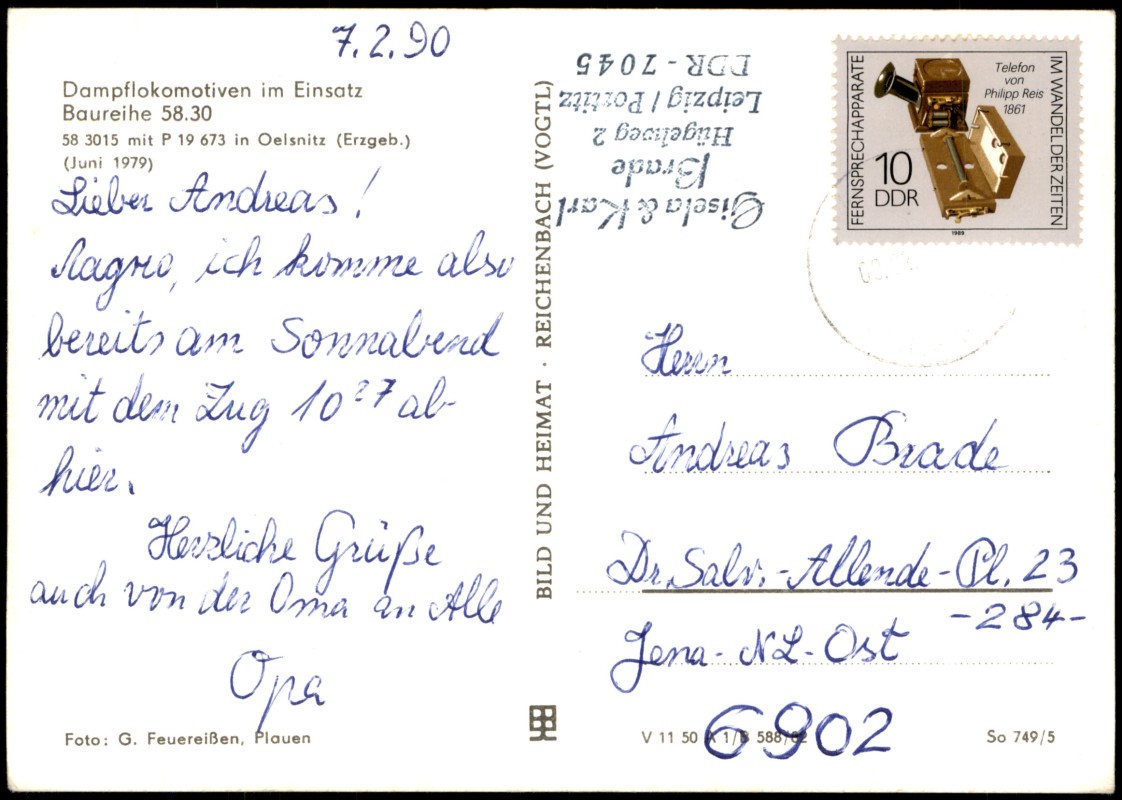 7.2.90
Dampflokomotiven im Einsatz
Baureihe 58.30
58 3015 mit P 19 673 in Oelsnitz (Erzgeb.)
(Juni 1979)
Lieber Andreas!
ich komme also
bereits am Sonnabend
mit dem Zug 10²⁷ ab
hier.
Herzliche Grüße
auch von der Oma an Alle
Opa
Foto: G. Feuereißen, Plauen
BILD UND HEIMAT · REICHENBACH (VOGTL)
Gisela & Karl
Brade
Hügelweg 2
Leipzig / Portitz
DDR - 7045
FERNSPRECHAPPARATE
IM WANDEL DER ZEITEN
Telefon
von
Philipp Reis
1861
10
DDR
1989
Herrn
Andreas Brade
Dr. Salv.-Allende-Pl. 23
-284-
Jena-NL-Ost
6902
V 11 50 A 1/B 588/82
So 749/5